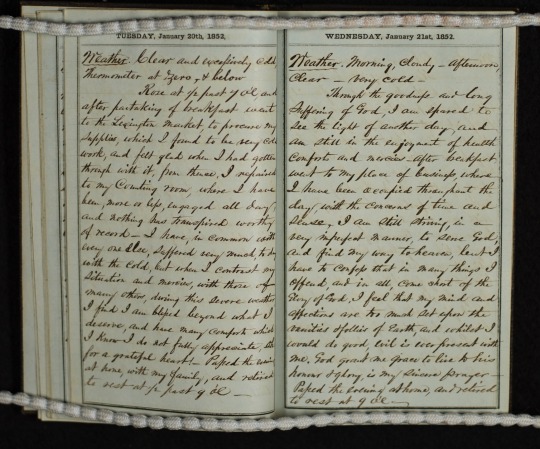 TUESDAY, January 20th, 1852.
Weather. Clear and excessively cold
Thermometer at Zero, & below
Rose at ½ past 7 OC and
after partaking of breakfast went
to the Lexington Market, to procure my
supplies, which I found to be very cold
work, and felt glad when I had gotten
through with it, from thence, I repaired
to my Counting room, where I have
been, more or less, engaged all day,
and nothing has transpired worthy
of record — I have, in common with
every one else, suffered very much, to day
with the cold, but when I contrast my
situation and mercies, with those of
many others, during this severe weather
I find I am blessed beyond what I
deserve, and have many comforts which
I know I do not fully appreciate, Oh
for a grateful heart! — Passed the evening
at home, with my family, and retired
to rest at ½ past 9 OC —
WEDNESDAY, January 21st, 1852.
Weather. Morning, Cloudy — Afternoon,
Clear — Very cold —
Through the goodness and long
suffering of God, I am spared to
see the light of another day, and
am still in the enjoyment of health
comforts and mercies. After breakfast
went to my place of business, where
I have been occupied throughout the
day, with the concerns of time and
sense, I am still striving, in a
very imperfect manner, to serve God,
and find my way to heaven, but I
have to confess that in many things I
offend, and in all, come short of the
Glory of God, I feel that my mind and
affections are too much set upon the
vanities & follies of Earth, and whilst I
would do good, evil is ever present with
me, God grant me grace to live to his
honour & glory, is my sincere prayer —
Passed the evening at home, and retired
to rest at 9 OC —